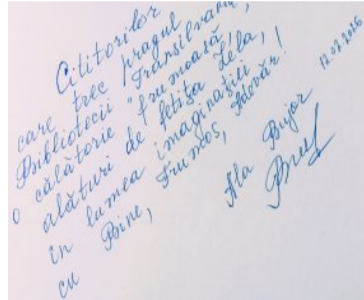 Cititorilor
care trec pragul
Bibliotecii "Transilvania",
o călătorie frumoasă,
alături de fetița Lela,
în lumea imaginației
cu Bine, Frumos, Adevăr!
Ala Bujor
12.02.2026